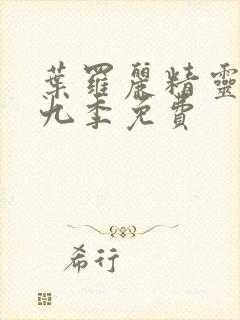 葉羅麗精靈
九季免費
希行